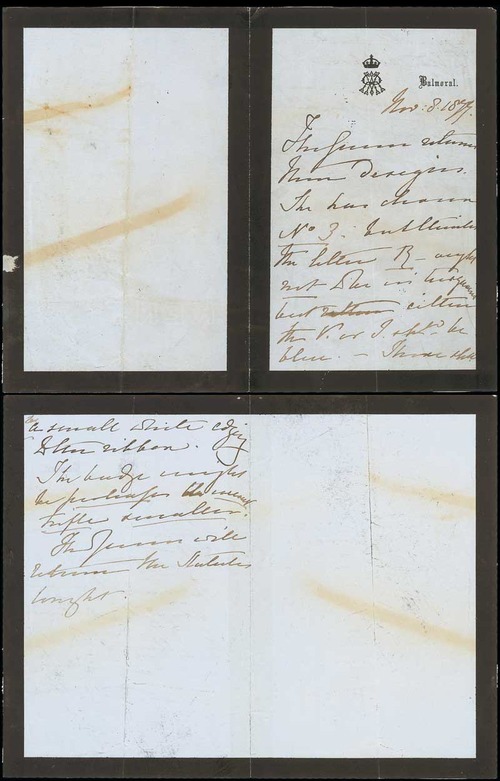 Balmoral.
Nov: 8. 1877.
The Queen returns
these designs.
She has chosen
No 3. but thinks
the letter R - ought
not to be in turquoise
but either
the V. or I. shd. be
blue. - There shd
be
a small white edging
to the ribbon.
The badge might
be perhaps the merest
trifle smaller.
The Queen will
return the Statutes
tonight.